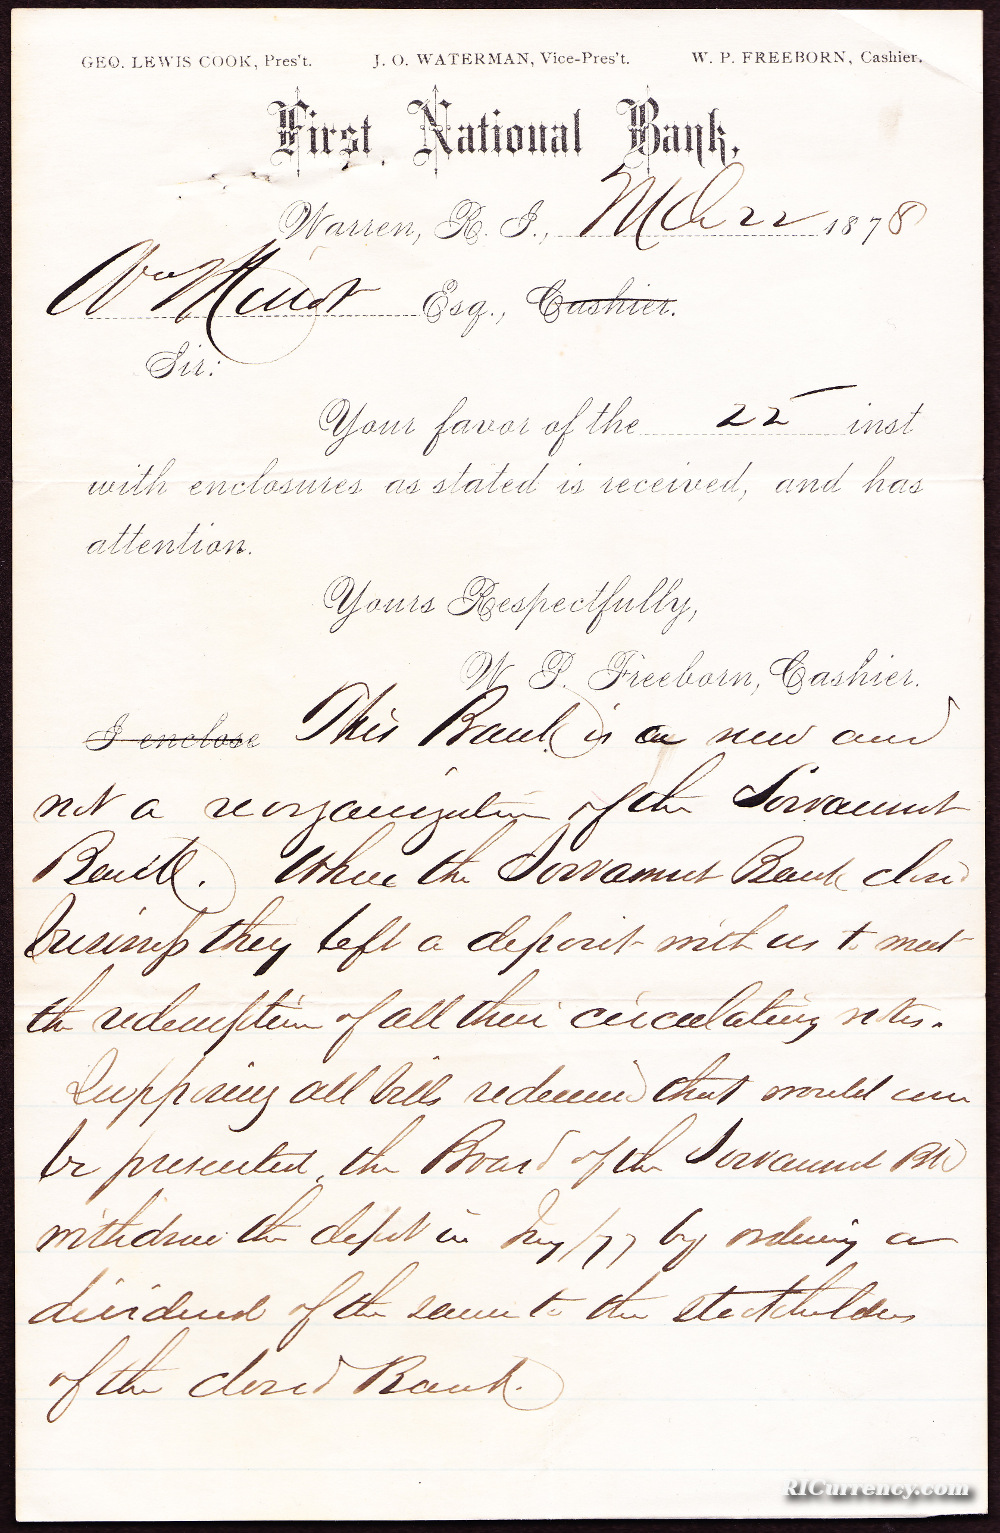 GEO. LEWIS COOK, Pres't. J. O. WATERMAN, Vice-Pres't. W. P. FREEBORN, Cashier.
First National Bank,
Warren, R. I., Mch 22 1878
Wm Esq., Cashier.
Sir:
Your favor of the 22 inst
with enclosures as stated is received, and has
attention.
Yours Respectfully,
W. P. Freeborn, Cashier.
I enclose This Bank is a new and
not a reorganization of the Sowamset
Bank. When the Sowamset Bank closed
business they left a deposit with us to meet
the redemption of all their circulating notes.
Supposing all bills redeemed that would ever
be presented, the Board of the Sowamset Bk
withdrew the in by ordering a
dividend of the same to the stockholders
of the closed Bank.
RICurrency.com